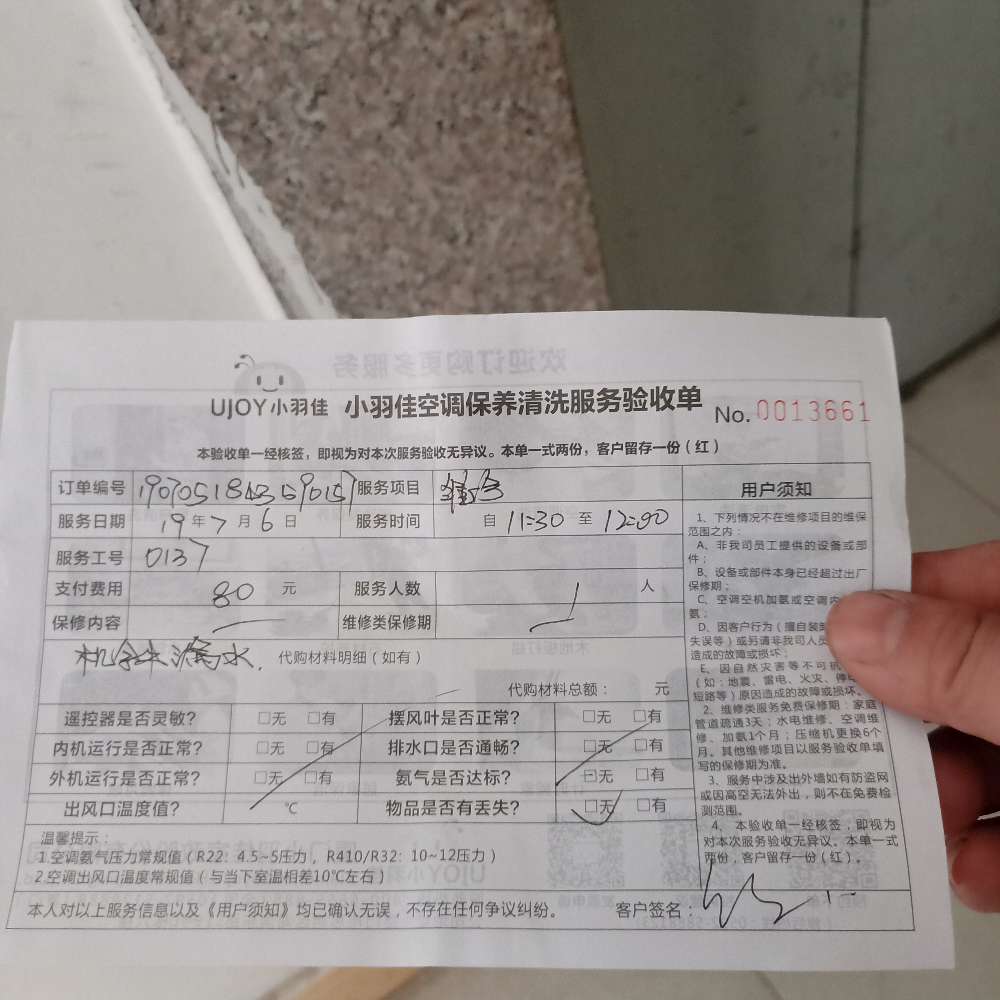 UJOY小羽佳 小羽佳空调保养清洗服务验收单 No.0013661
本验收单一经核签，即视为对本次服务验收无异议。本单一式两份，客户留存一份（红）
订单编号 服务项目
服务日期 19年7月6日 服务时间 自 11:30 至 12:00
服务工号 0137
支付费用 80 元 服务人数 1 人
保修内容 维修类保修期
漏水. 代购材料明细（如有）
代购材料总额： 元
遥控器是否灵敏？ □无 □有 摆风叶是否正常？ □无 □有
内机运行是否正常？ □无 □有 排水口是否通畅？ □无 □有
外机运行是否正常？ □无 □有 氨气是否达标？ □无 □有
出风口温度值？ ℃ 物品是否有丢失？ □无 □有
温馨提示：
1.空调氨气压力常规值（R22：4.5~5压力，R410/R32：10~12压力）
2.空调出风口温度常规值（与当下室温相差10℃左右）
本人对以上服务信息以及《用户须知》均已确认无误，不存在任何争议纠纷。 客户签名：
用户须知
1、下列情况不在维修项目的维保
范围之内：
A、非我司员工提供的设备或部
件；
B、设备或部件本身已经超过出厂
保修期；
C、空调空机加氨或空调内
氨；
D、因客户行为（擅自装
失误等）或另请非我司人员
造成的故障或损坏；
E、因自然灾害等不可抗
（如：地震、雷电、火灾、停
短路等）原因造成的故障或损坏。
2、维修类服务免费保修期：家庭
管道疏通3天；水电维修、空调维
修、加氨1个月；压缩机更换6个
月。其他维修项目以服务验收单填
写的保修期为准。
3、服务中涉及出外墙如有防盗网
或因高空无法外出，则不在免费检
测范围。
4、本验收单一经核签，即视为
对本次服务验收无异议。本单一式
两份，客户留存一份（红）。